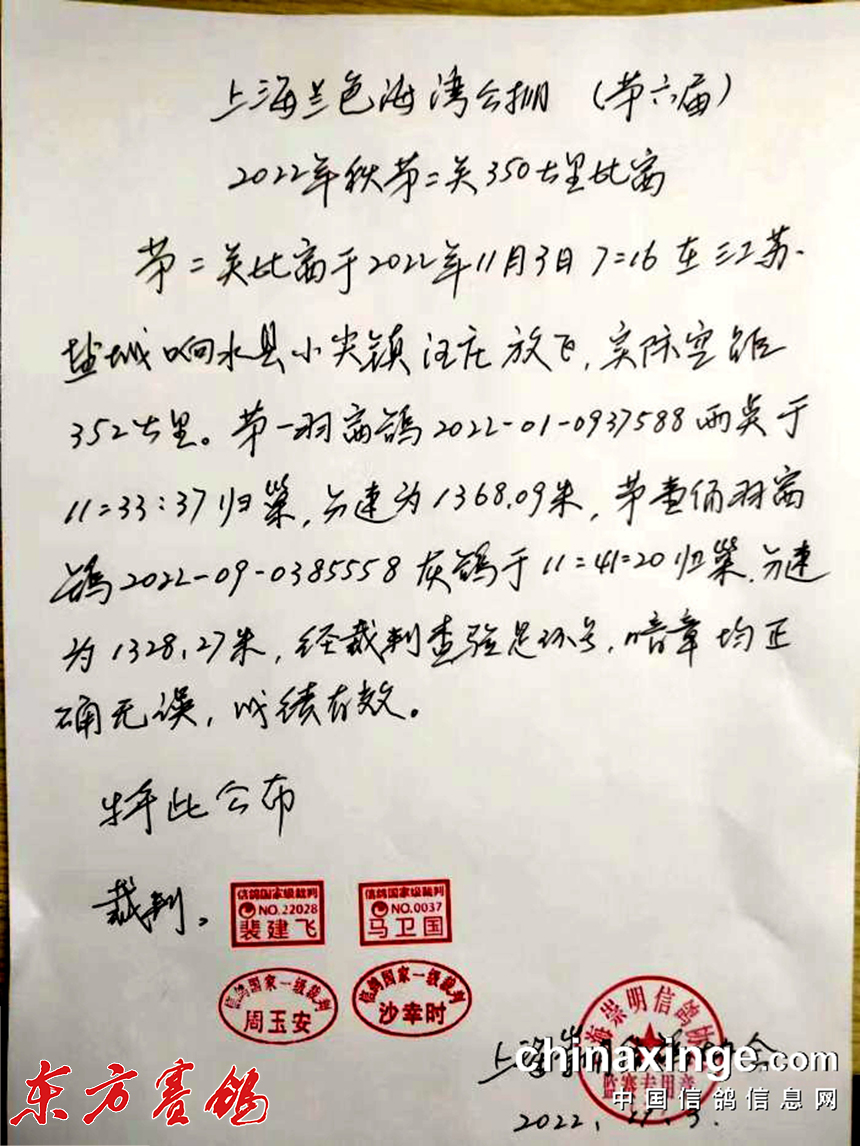 上海兰色海湾公棚（第六届）
2022年秋第二关350公里比赛
第二关比赛于2022年11月3日7=16在江苏.
盐城响水县小尖镇汪庄放飞,实际空距
352公里。第一羽赛鸽2022-01-0937588雨点于
11=33:37归巢,分速为1368.09米,第壹佰羽赛
鸽2022-09-0385558灰鸽于11=41=20归巢.分速
为1328.27米,经裁判查验足环号,暗章均正
确无误,成绩有效。
特此公布
裁判。
信鸽国家级裁判
NO.22028
裴建飞
信鸽国家级裁判
NO.0037
马卫国
信鸽国家一级裁判
周玉安
信鸽国家一级裁判
沙幸时
海崇明信鸽协
监赛专用章
上海崇
会
2022.11.3.
东方赛鸽
chinaxinge.com
中国信鸽信息网